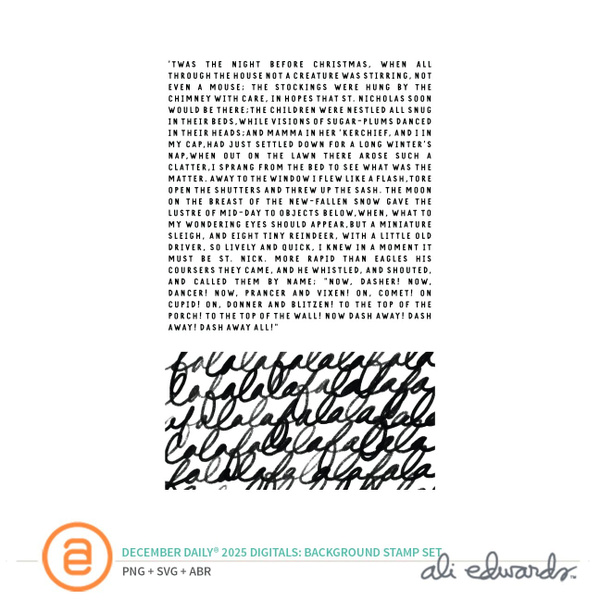 'TWAS THE NIGHT BEFORE CHRISTMAS, WHEN ALL
THROUGH THE HOUSE NOT A CREATURE WAS STIRRING, NOT
EVEN A MOUSE; THE STOCKINGS WERE HUNG BY THE
CHIMNEY WITH CARE, IN HOPES THAT ST. NICHOLAS SOON
WOULD BE THERE;THE CHILDREN WERE NESTLED ALL SNUG
IN THEIR BEDS,WHILE VISIONS OF SUGAR-PLUMS DANCED
IN THEIR HEADS;AND MAMMA IN HER 'KERCHIEF, AND I IN
MY CAP,HAD JUST SETTLED DOWN FOR A LONG WINTER'S
NAP,WHEN OUT ON THE LAWN THERE AROSE SUCH A
CLATTER,I SPRANG FROM THE BED TO SEE WHAT WAS THE
MATTER. AWAY TO THE WINDOW I FLEW LIKE A FLASH,TORE
OPEN THE SHUTTERS AND THREW UP THE SASH. THE MOON
ON THE BREAST OF THE NEW-FALLEN SNOW GAVE THE
LUSTRE OF MID-DAY TO OBJECTS BELOW,WHEN, WHAT TO
MY WONDERING EYES SHOULD APPEAR,BUT A MINIATURE
SLEIGH, AND EIGHT TINY REINDEER, WITH A LITTLE OLD
DRIVER, SO LIVELY AND QUICK, I KNEW IN A MOMENT IT
MUST BE ST. NICK. MORE RAPID THAN EAGLES HIS
COURSERS THEY CAME, AND HE WHISTLED, AND SHOUTED,
AND CALLED THEM BY NAME; "NOW, DASHER! NOW,
DANCER! NOW, PRANCER AND VIXEN! ON, COMET! ON
CUPID! ON, DONNER AND BLITZEN! TO THE TOP OF THE
PORCH! TO THE TOP OF THE WALL! NOW DASH AWAY! DASH
AWAY! DASH AWAY ALL!"
falalafalalalafalala
lafalalalafalalafafa
afalalalafalalalafala
lalalafalalalafalala
falalalafalalalafala
a
DECEMBER DAILY® 2025 DIGITALS: BACKGROUND STAMP SET
PNG + SVG + ABR
ali edwards™